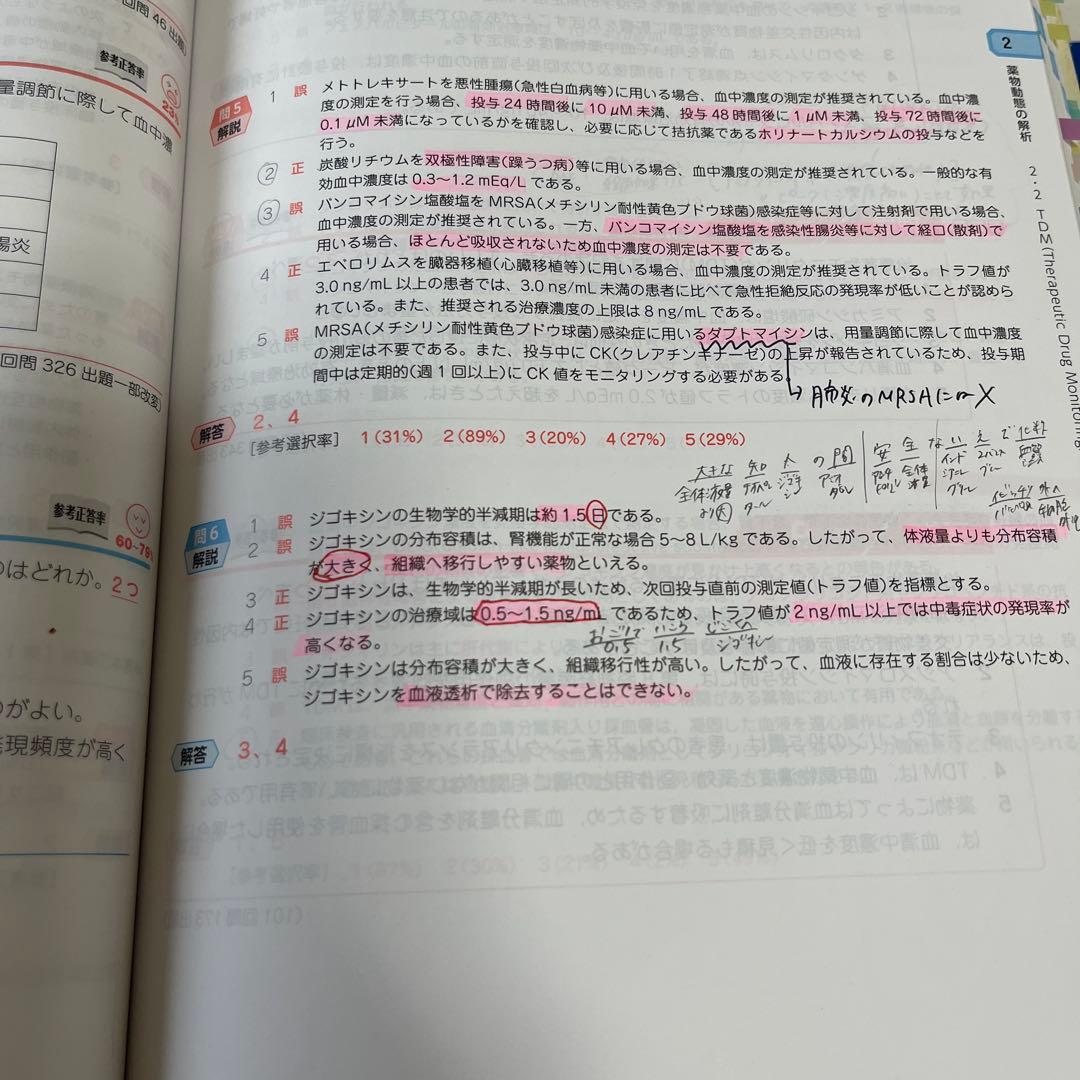 回問 46 出題
参考正答率
23%
量調節に際して血中濃
腸炎
回問 326 出題一部改変)
参考正答率
60~79%
のはどれか。2つ
がよい。
発現頻度が高く
2
薬物動態の解析
2・2 TDM(Therapeutic Drug Monitoring)
問5
解説
1 誤 メトトレキサートを悪性腫瘍(急性白血病等)に用いる場合、血中濃度の測定が推奨されている。血中濃
度の測定を行う場合、投与24時間後に10μM未満、投与48時間後に1μM未満、投与72時間後に
0.1μM未満になっているかを確認し、必要に応じて拮抗薬であるホリナートカルシウムの投与などを
行う。
② 正 炭酸リチウムを双極性障害(躁うつ病)等に用いる場合、血中濃度の測定が推奨されている。一般的な有
効血中濃度は0.3~1.2 mEq/Lである。
③ 誤 バンコマイシン塩酸塩をMRSA(メチシリン耐性黄色ブドウ球菌)感染症等に対して注射剤で用いる場合、
血中濃度の測定が推奨されている。一方、バンコマイシン塩酸塩を感染性腸炎等に対して経口(散剤)で
用いる場合、ほとんど吸収されないため血中濃度の測定は不要である。
4 正 エベロリムスを臓器移植(心臓移植等)に用いる場合、血中濃度の測定が推奨されている。トラフ値が
3.0 ng/mL以上の患者では、3.0 ng/mL未満の患者に比べて急性拒絶反応の発現率が低いことが認め
られている。また、推奨される治療濃度の上限は8 ng/mLである。
5 誤 MRSA(メチシリン耐性黄色ブドウ球菌)感染症に用いるダプトマイシンは、用量調節に際して血中濃度
の測定は不要である。また、投与中にCK(クレアチンキナーゼ)の上昇が報告されているため、投与期
間中は定期的(週1回以上)にCK値をモニタリングする必要がある。
肺炎のMRSAには X
解答 2、4
[参考選択率] 1(31%) 2(89%) 3(20%) 4(27%) 5(29%)
大きな 知 大 の間 安全 ない え で 化粧
全体液量
より大
問6
解説
1 誤 ジゴキシンの生物学的半減期は約1.5日である。
2 誤 ジゴキシンの分布容積は、腎機能が正常な場合5~8 L/kgである。したがって、体液量よりも分布容積
が大きく、組織へ移行しやすい薬物といえる。
3 正 ジゴキシンは、生物学的半減期が長いため、次回投与直前の測定値(トラフ値)を指標とする。
4 正 ジゴキシンの治療域は0.5~1.5 ng/mLであるため、トラフ値が2 ng/mL以上では中毒症状の発現率が
高くなる。
0.5 1.5
5 誤 ジゴキシンは分布容積が大きく、組織移行性が高い。したがって、血液に存在する割合は少ないため、
ジゴキシンを血液透析で除去することはできない。
解答 3、4